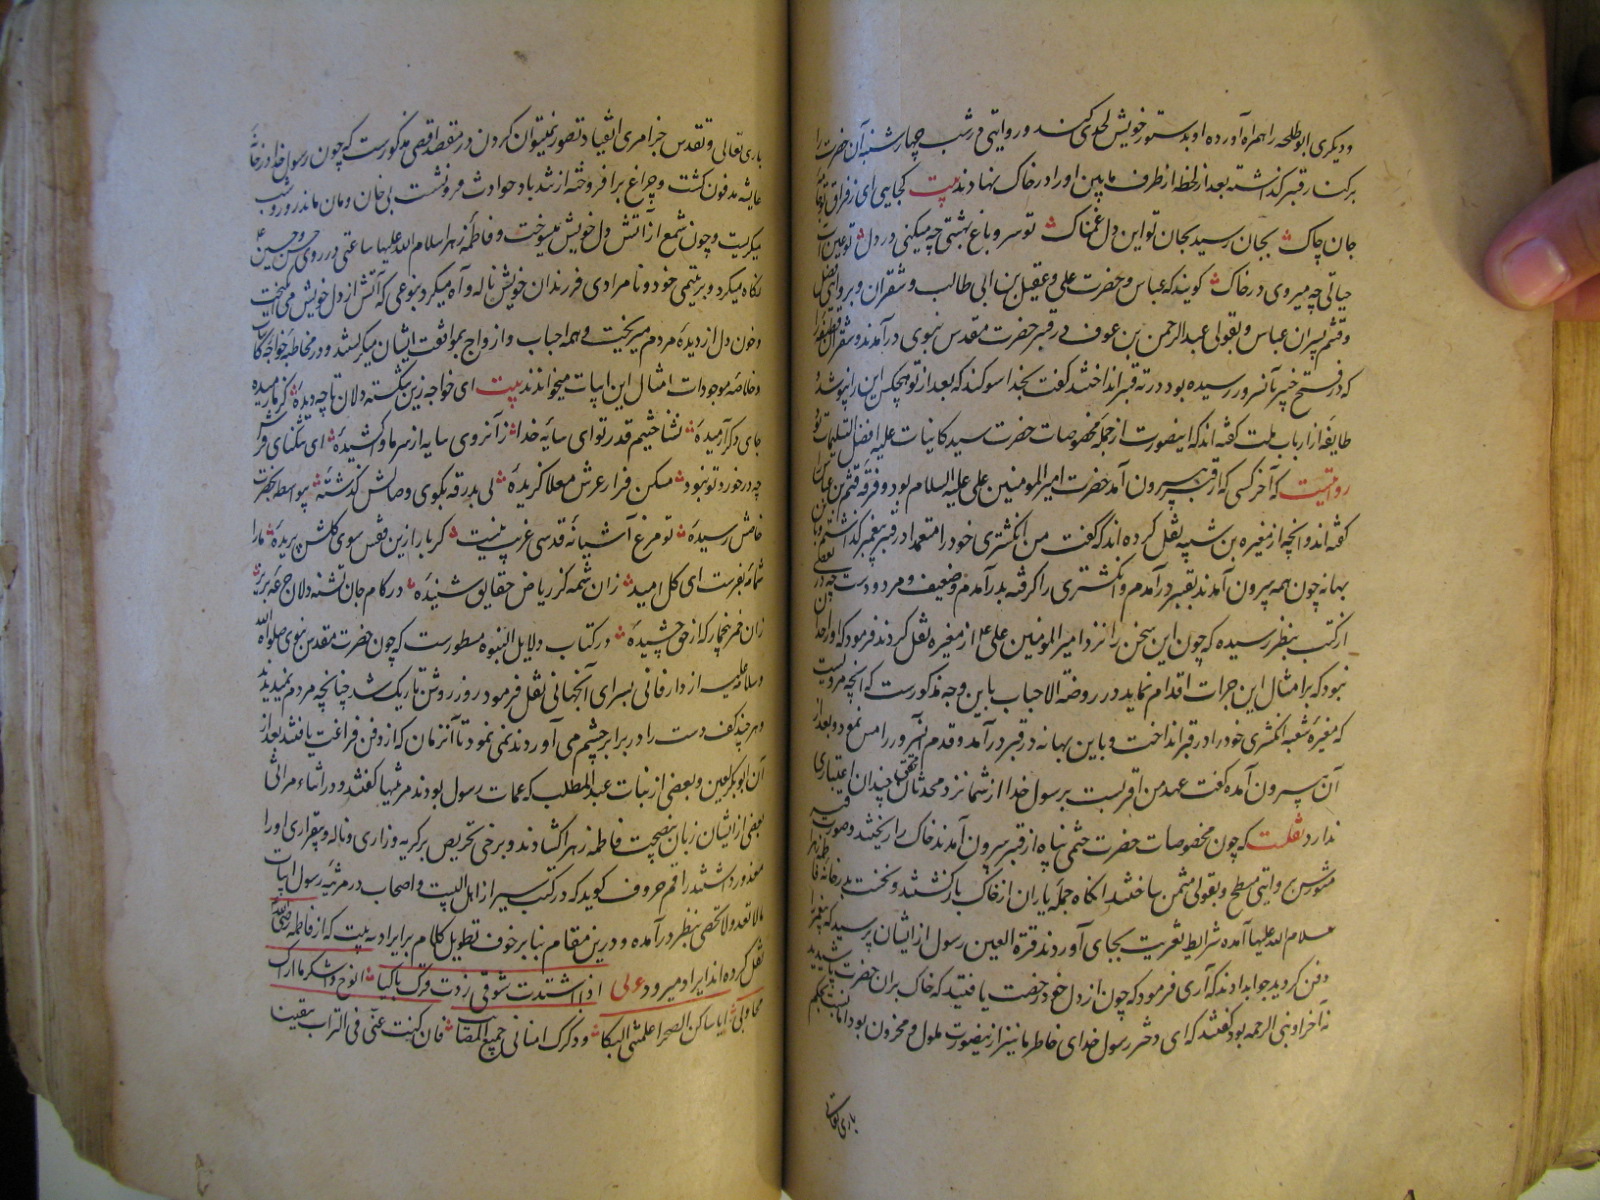 ودیگری ابوطلحه را همراه آورده او بدستور خویش لحدی کند و روایتی در شب چهارشنبه آن حضرت را
برکنار قبر گذاشته بعد از لحظه از طرف پایین او را در خاک نهادند بیت کجایی ای ز فراق تو
جان چاک بجان رسید بجان تو این دل غمناک تو سرو باغ بهشتی چه میکنی در دل تو عین
حیاتی چه میروی در خاک گویند که عباس و حضرت علی و عقیل بن ابی طالب و شقران و بروایتی فضل
وقثم پسران عباس و بقولی عبدالرحمن بن عوف در قبر حضرت مقدس نبوی درآمدند و شقران قطیفه را
که در فتح خیبر بآنسرور رسیده بود در ته قبر انداخت و گفت بخدا سوگند که بعد از تو هیچکس این را نپوشد و
طایفه از ارباب ملت گفته اند که اینصورت از جمله مخصوصات حضرت سید کاینات علیه افضل التسلیمات
روایتست که آخر کسی که از قبر بیرون آمد حضرت امیر المومنین علی علیه السلام بود و فرقه قثم بن عباس را
گفته اند و آنچه از مغیره بن شعبه نقل کرده اند که گفت من انگشتری خود را متعمدا در قبر پیغمبر گذاشتم و
بهانه چون همه بیرون آمدند بقبر درآمدم و انگشتری را گرفته بدرآمدم ضعیف و مردودست چه در
از کتب بنظر رسیده که چون این سخن را نزد امیر المومنین علی ع از مغیره نقل کردند فرمود که او را حد
نبود که بر امثال این جرات اقدام نماید در روضة الاحباب باین وجه مذکورست که آنچه مرویست
که مغیره شعبه انگشتری خود را در قبر انداخت و باین بهانه در قبر درآمد و قدم آنسرور را مس نمود و بعد از
آن بیرون آمده گفت عهد من اقربست برسول خدا از شما نزد محدثان تحقیق چندان اعتباری
ندارد نقلست که چون مخصوصات حضرت ختمی پناه از قبر بیرون آمدند خاک را ریختند و صورت قبر
بروایتی مسطح و بقولی مثمن ساختند آنگاه جمله یاران از خاک بازگشتند و نخست بدر خانه فاطمه زهرا
سلام الله علیها آمده شرایط تعزیت بجای آوردند قرة العین رسول از ایشان پرسید که پیغمبر را
دفن کردید جواب دادند که آری فرمود که چون از دل خود رخصت یافتید که خاک بران حضرت پاشیدید
نه آخر او نبی الرحمه بود گفتند که ای دختر رسول خدای خاطر ما نیز ازینصورت ملول و محزون بود اما نسبت بحکم
باری تعالی
باری تعالی و تقدس جز امری انقیاد تصور نمیتوان کردن در مقصد اقصی مذکورست که چون رسول خدا در خانه
عایشه مدفون گشت و چراغ برافروخته از تندباد حوادث فرونشست بی خان و مان مانند روز و شب
میگریست و چون شمع از آتش دل خویش میسوخت و فاطمه زهرا سلام الله علیها ساعتی در روی حسن و حسین ع
نگاه میکرد و بر یتیمی خود و نامرادی فرزندان خویش ناله و آه میکرد بنوعی که آتش از دل خویش می انگیخت
وخون دل از دیده مردم میریخت و همه احباب و ازواج بموافقت ایشان میگریستند و در مخاطبه خواجه کاینات
وخلاصه موجودات امثال این ابیات میخواندند بیت ای خواجه زین شکسته دلان تا چه دیده کز ما رمیده
جای دگر آرمیده نشناختیم قدر تو ای سایه خدا زآنروی سایه از سر ما وکشیده ای تنگنای فرش
چه در خورد تو نبود مسکن فراز عرش معلا گزیده لی بدرقه بکوی وصالش گذشته بیواسطه بحضرت
خاصش رسیده تو مرغ آشیانه قدسی غریب نیست گر باز ازین قفس سوی گلشن پریده ما را
شمامه بفرست ای گل امید زان شمه کز ریاض حقایق شنیده در کام جان تشنه دلان جرعه بریز
زان خمر بیخمار که از حق چشیده در کتاب دلایل النبوه مسطورست که چون حضرت مقدس نبوی صلوات الله
وسلامه علیه از دار فانی بسرای آنجهانی نقل فرمود روز روشن تاریک شد چنانچه مردم نمیدیدند
وهر چند کف دست را در برابر چشم می آوردند نمی نمود تا آنزمان که از دفن فراغت یافتند بعد از
آن ابوبکر لعین و بعضی از بنات عبدالمطلب که عمات رسول بودند مرثیها گفتند و در اثناء مراثی
بعضی از ایشان زبان بنصیحت فاطمه زهرا گشادند و برخی تحریص بر گریه و زاری و ناله و بیقراری او را
معذور داشتند راقم حروف گوید که در کتب سیر از اهل البیت و اصحاب در مرثیه رسول ابیات
مالاتعد ولاتحصی بنظر درآمده و درین مقام بنابر خوف تطویل کلام بر ایراد سه بیت که از فاطمه رضی الله
نقل کرده اند ایراد میرود عربی اذا اشتدت شوقی زرت قبرک باکیا انوح واشکو ما اراک
مجاوبی ایا ساکن الصحرا علمتنی البکا وذکرک انسانی جمیع المصایب فان کنت عنی فی التراب بیقینا